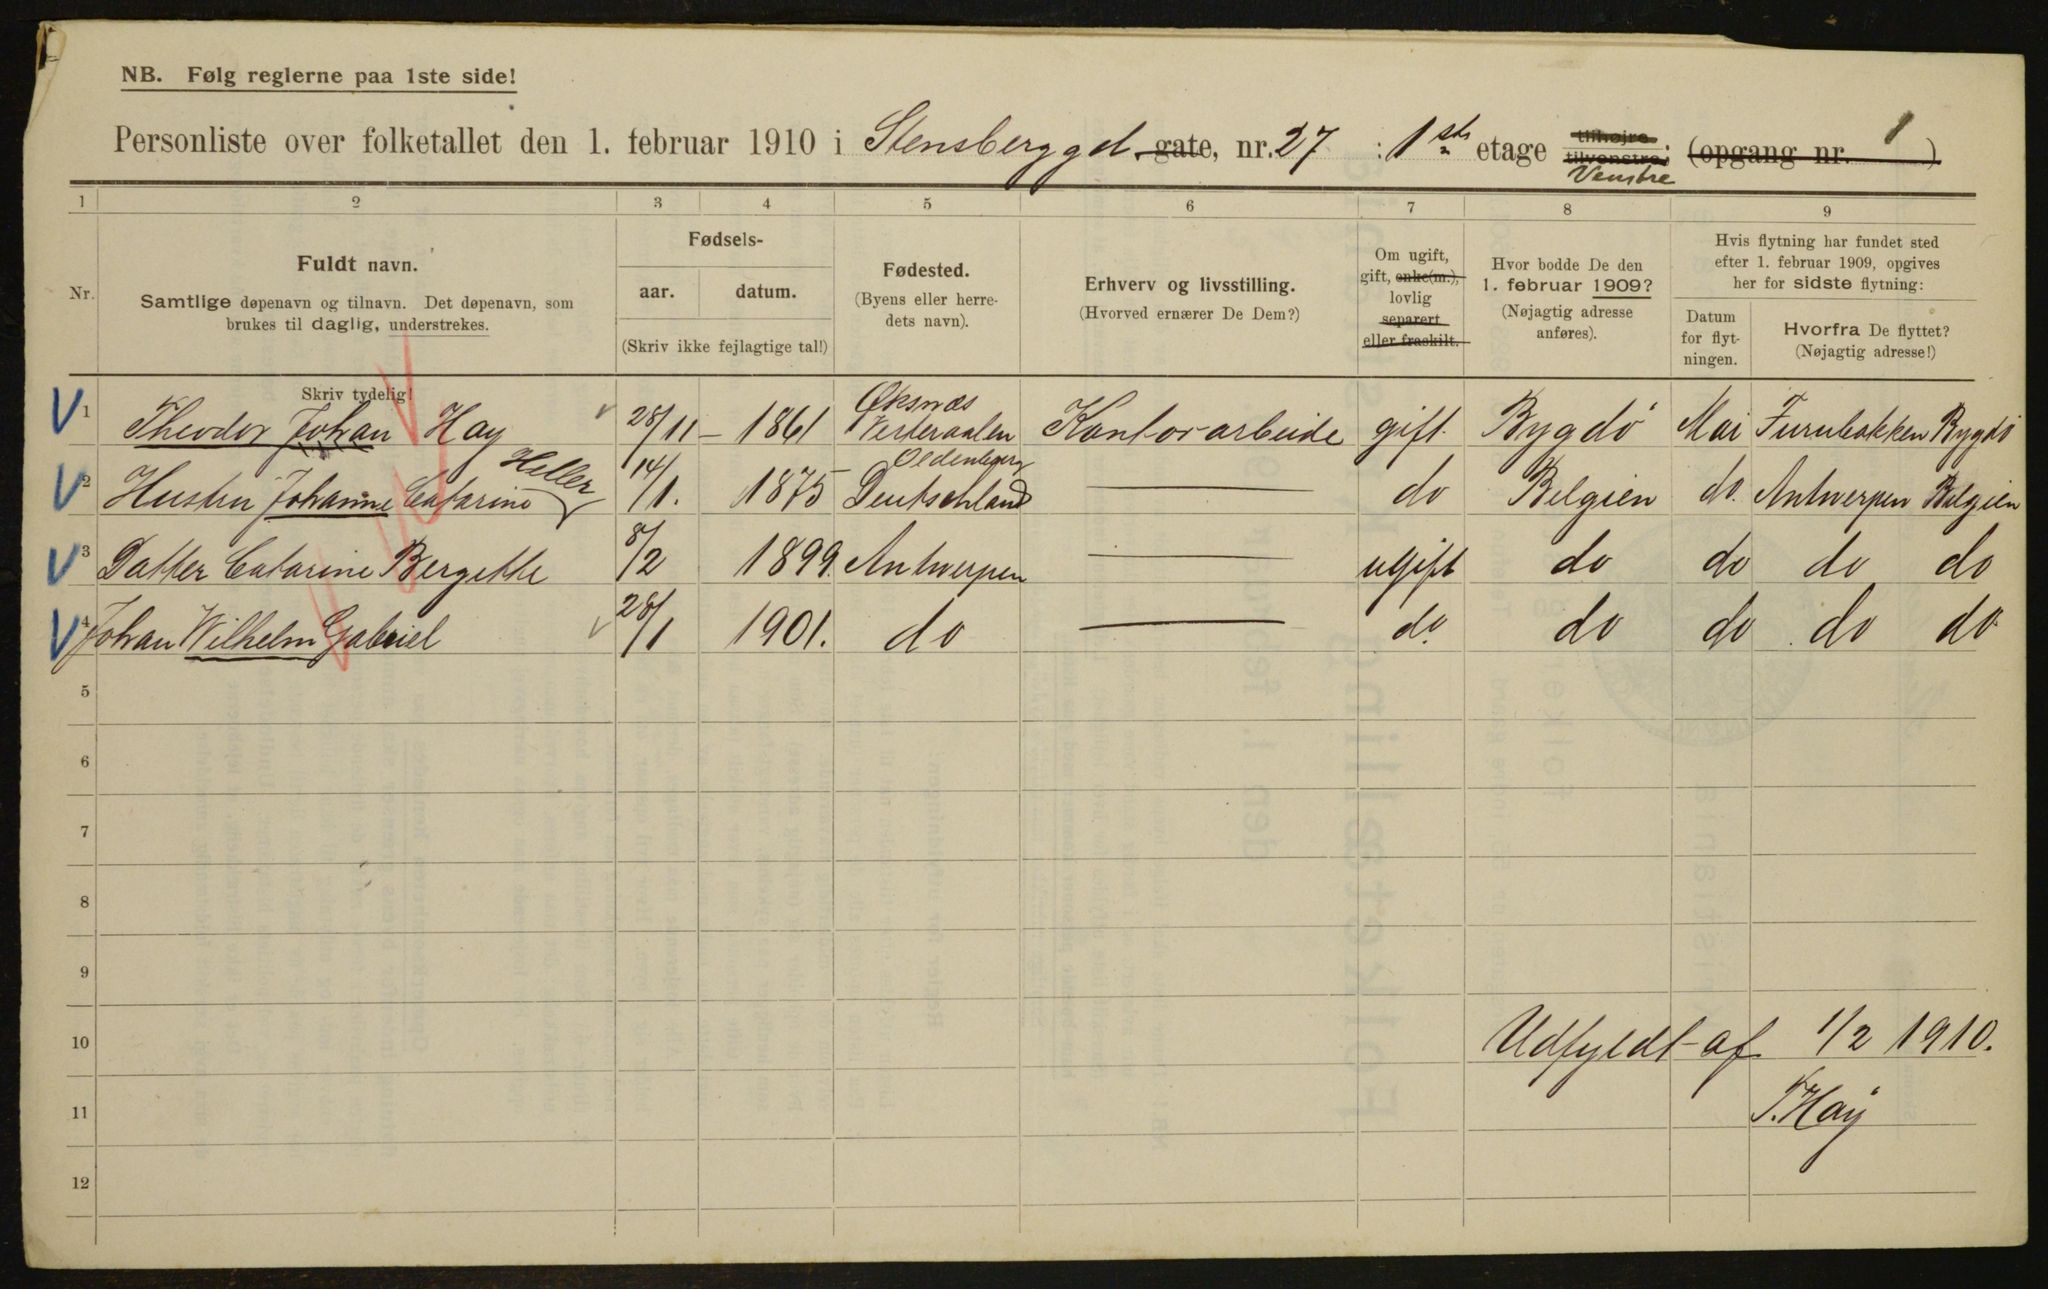 NB. Følg reglerne paa 1ste side!
Personliste over folketallet den 1. februar 1910 i Stensberggd. gate, nr. 27 : 1ste etage tilhøjre tilvenstre; Venstre (opgang nr. 1 )
1 2 3 4 5 6 7 8 9
Nr.
Fuldt navn.
Samtlige døpenavn og tilnavn. Det døpenavn, som
brukes til daglig, understrekes.
Skriv tydelig!
Fødsels-
aar. datum.
(Skriv ikke fejlagtige tal!)
Fødested.
(Byens eller herre-
dets navn).
Erhverv og livsstilling.
(Hvorved ernærer De Dem?)
Om ugift,
gift, enke(m.),
lovlig
separert
eller fraskilt.
Hvor bodde De den
1. februar 1909?
(Nøjagtig adresse
anføres).
Hvis flytning har fundet sted
efter 1. februar 1909, opgives
her for sidste flytning:
Datum
for flyt-
ningen.
Hvorfra De flyttet?
(Nøjagtig adresse!)
1 Theodor Johan Hay 28/11 – 1861 Øksnæs Vesteraalen Kontorarbeide gift Bygdö Mai Furubakken Bygdö
2 Hustru Johanne Catarine Heller 14/1. 1875 Oldenburg Deutschland do Belgien do. Antwerpen Belgien
3 Datter Catarine Bergette 8/2 1899. Antwerpen ugift do do do do
4 Johan Wilhelm Gabriel 28/1 1901. do do. do do do do
5
6
7
8
9
10 Udfyldt af 1/2 1910.
11 T. Hay
12